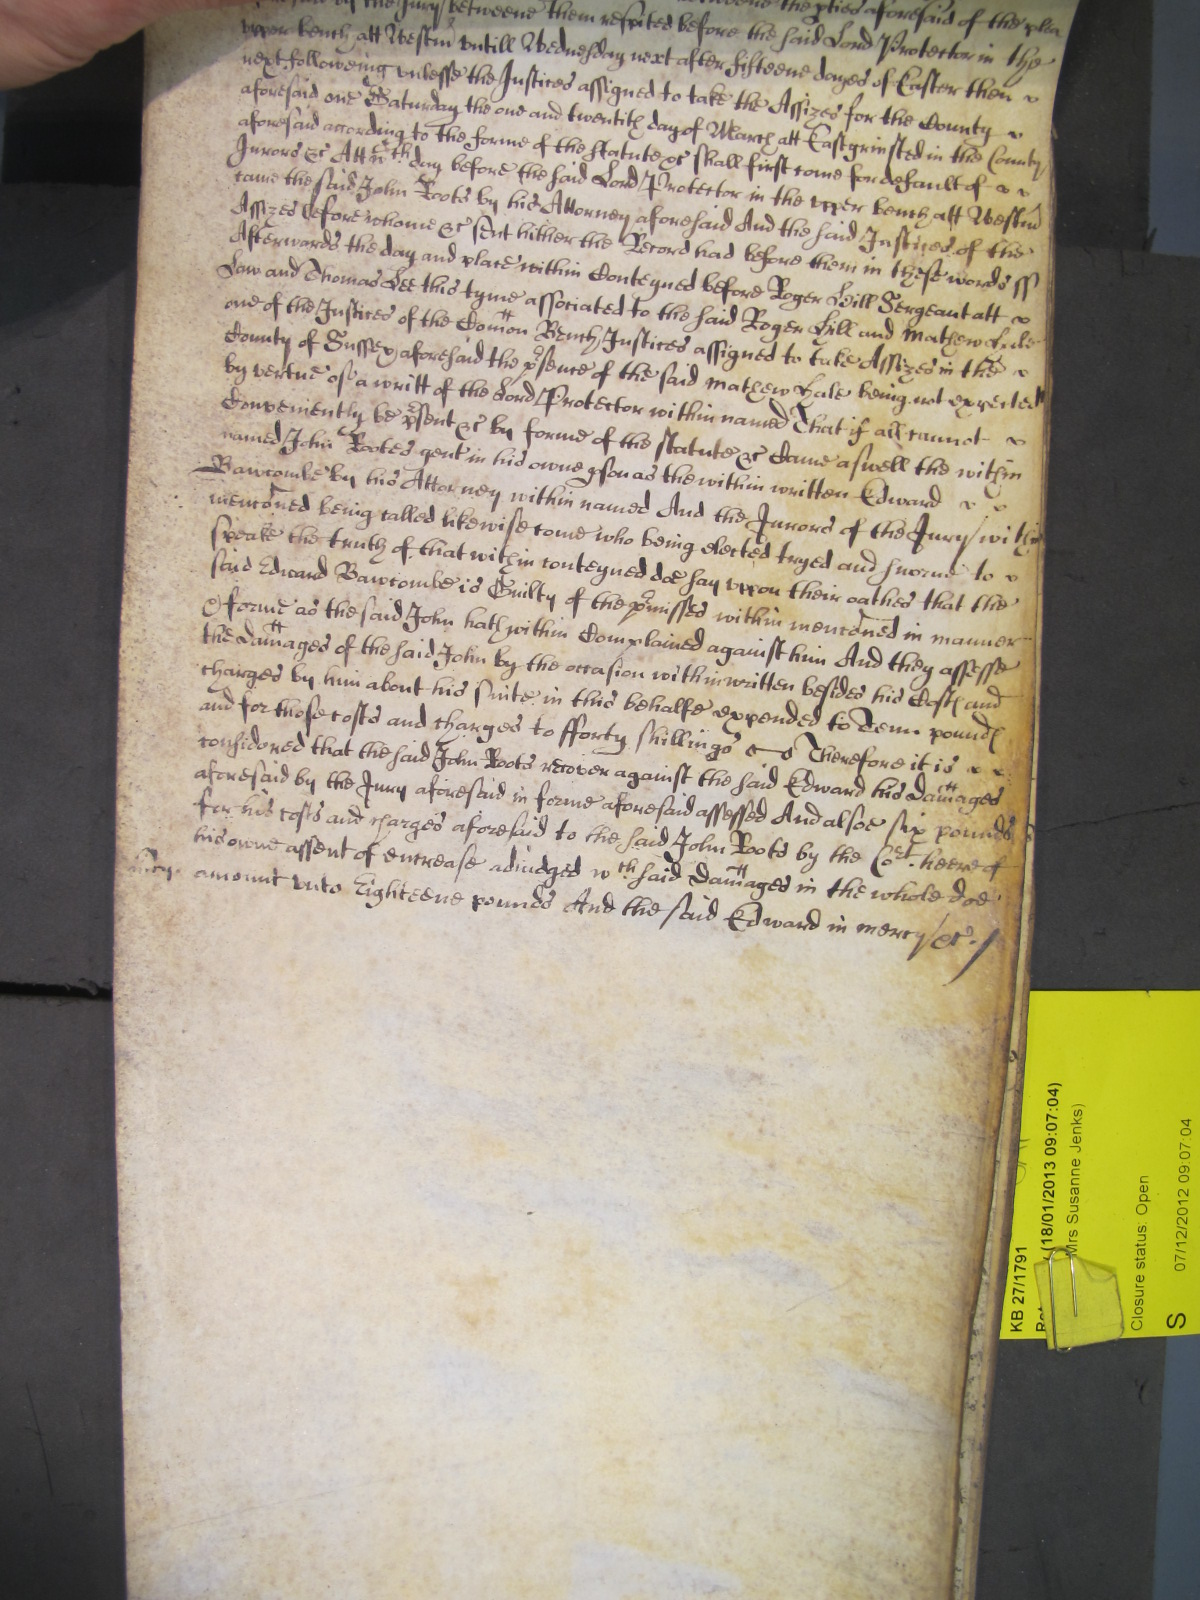 by the Jury betweene them respited before the said Lord Protector in the
upper bench att Westm untill Wednesday next after fifteene dayes of Easter then
next following unlesse the Justices assigned to take the Assizes for the County
aforesaid one Saturday the one and twentith day of March att Eastgrinsted in the County
aforesaid according to the forme of the statute &c shall first come for default of
Jurors &c Att wch day before the said Lord Protector in the upper bench att Westm
came the said John Roots by his Attorney aforesaid And the said Justices of the
Assizes before whome &c sent hither the Record had before them in these words ss
Afterwards the day and place within Conteyned before Roger Hill Sergeant att
Law and Thomas Lee this tyme associated to the said Roger Hill and Mathew Hale
one of the Justices of the Comon Bench Justices assigned to take Assizes in the
County of Sussex aforesaid the psence of the said Mathew Hale being not expected
by vertue of a writt of the Lord Protector within named That if all cannot
Conveniently be psent &c by forme of the statute &c Came aswell the within
named John Rootes gent in his owne pson as the within written Edward
Bawcombe by his Attorney within named And the Jurors of the Jury within
menconed being called likewise come who being elected tryed and sworne to
speake the truth of that within conteyned doe say uppon their oathes that the
said Edward Bawcombe is Guilty of the pmisses within menconed in manner
& forme as the said John hath within Complained against him And they assesse
the damages of the said John by the occasion within written besides his Costs and
charges by him about his suite in this behalfe expended to Tenn pounds
and for those costs and charges to fforty shillings Therefore it is
considered that the said John Roots recover against the said Edward his Damages
aforesaid by the Jury aforesaid in forme aforesaid assessed And alsoe six pounds
for his costs and charges aforesaid to the said John Roots by the Cot. heere of
his owne assent of encrease adiudged wch said Damages in the whole doe
mercy. amount unto Eighteene pounds And the said Edward in mercy &c.
KB 27/1791
(18/01/2013 09:07:04)
Mrs Susanne Jenks)
Closure status: Open
07/12/2012 09:07:04
S